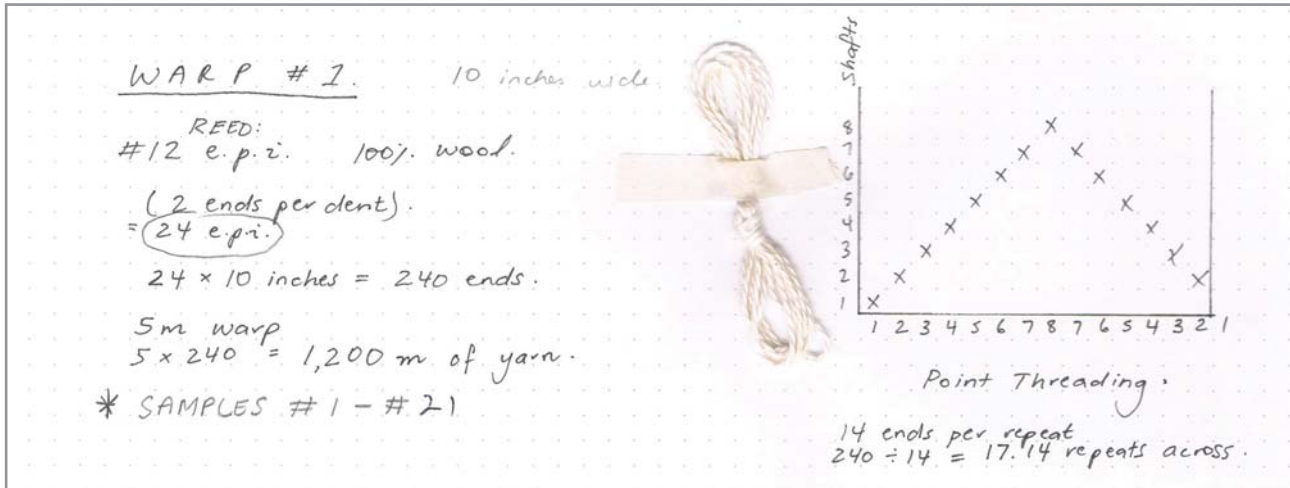 WARP #1.
10 inches wide.
REED:
#12 e.p.i. 100% wool.
(2 ends per dent).
= 24 e.p.i.
24 × 10 inches = 240 ends.
5m warp
5 × 240 = 1,200 m of yarn.
* SAMPLES #1 - #21
Shafts
8
7
6
5
4
3
2
1
1 2 3 4 5 6 7 8 7 6 5 4 3 2 1
Point Threading.
14 ends per repeat
240 ÷ 14 = 17.14 repeats across.